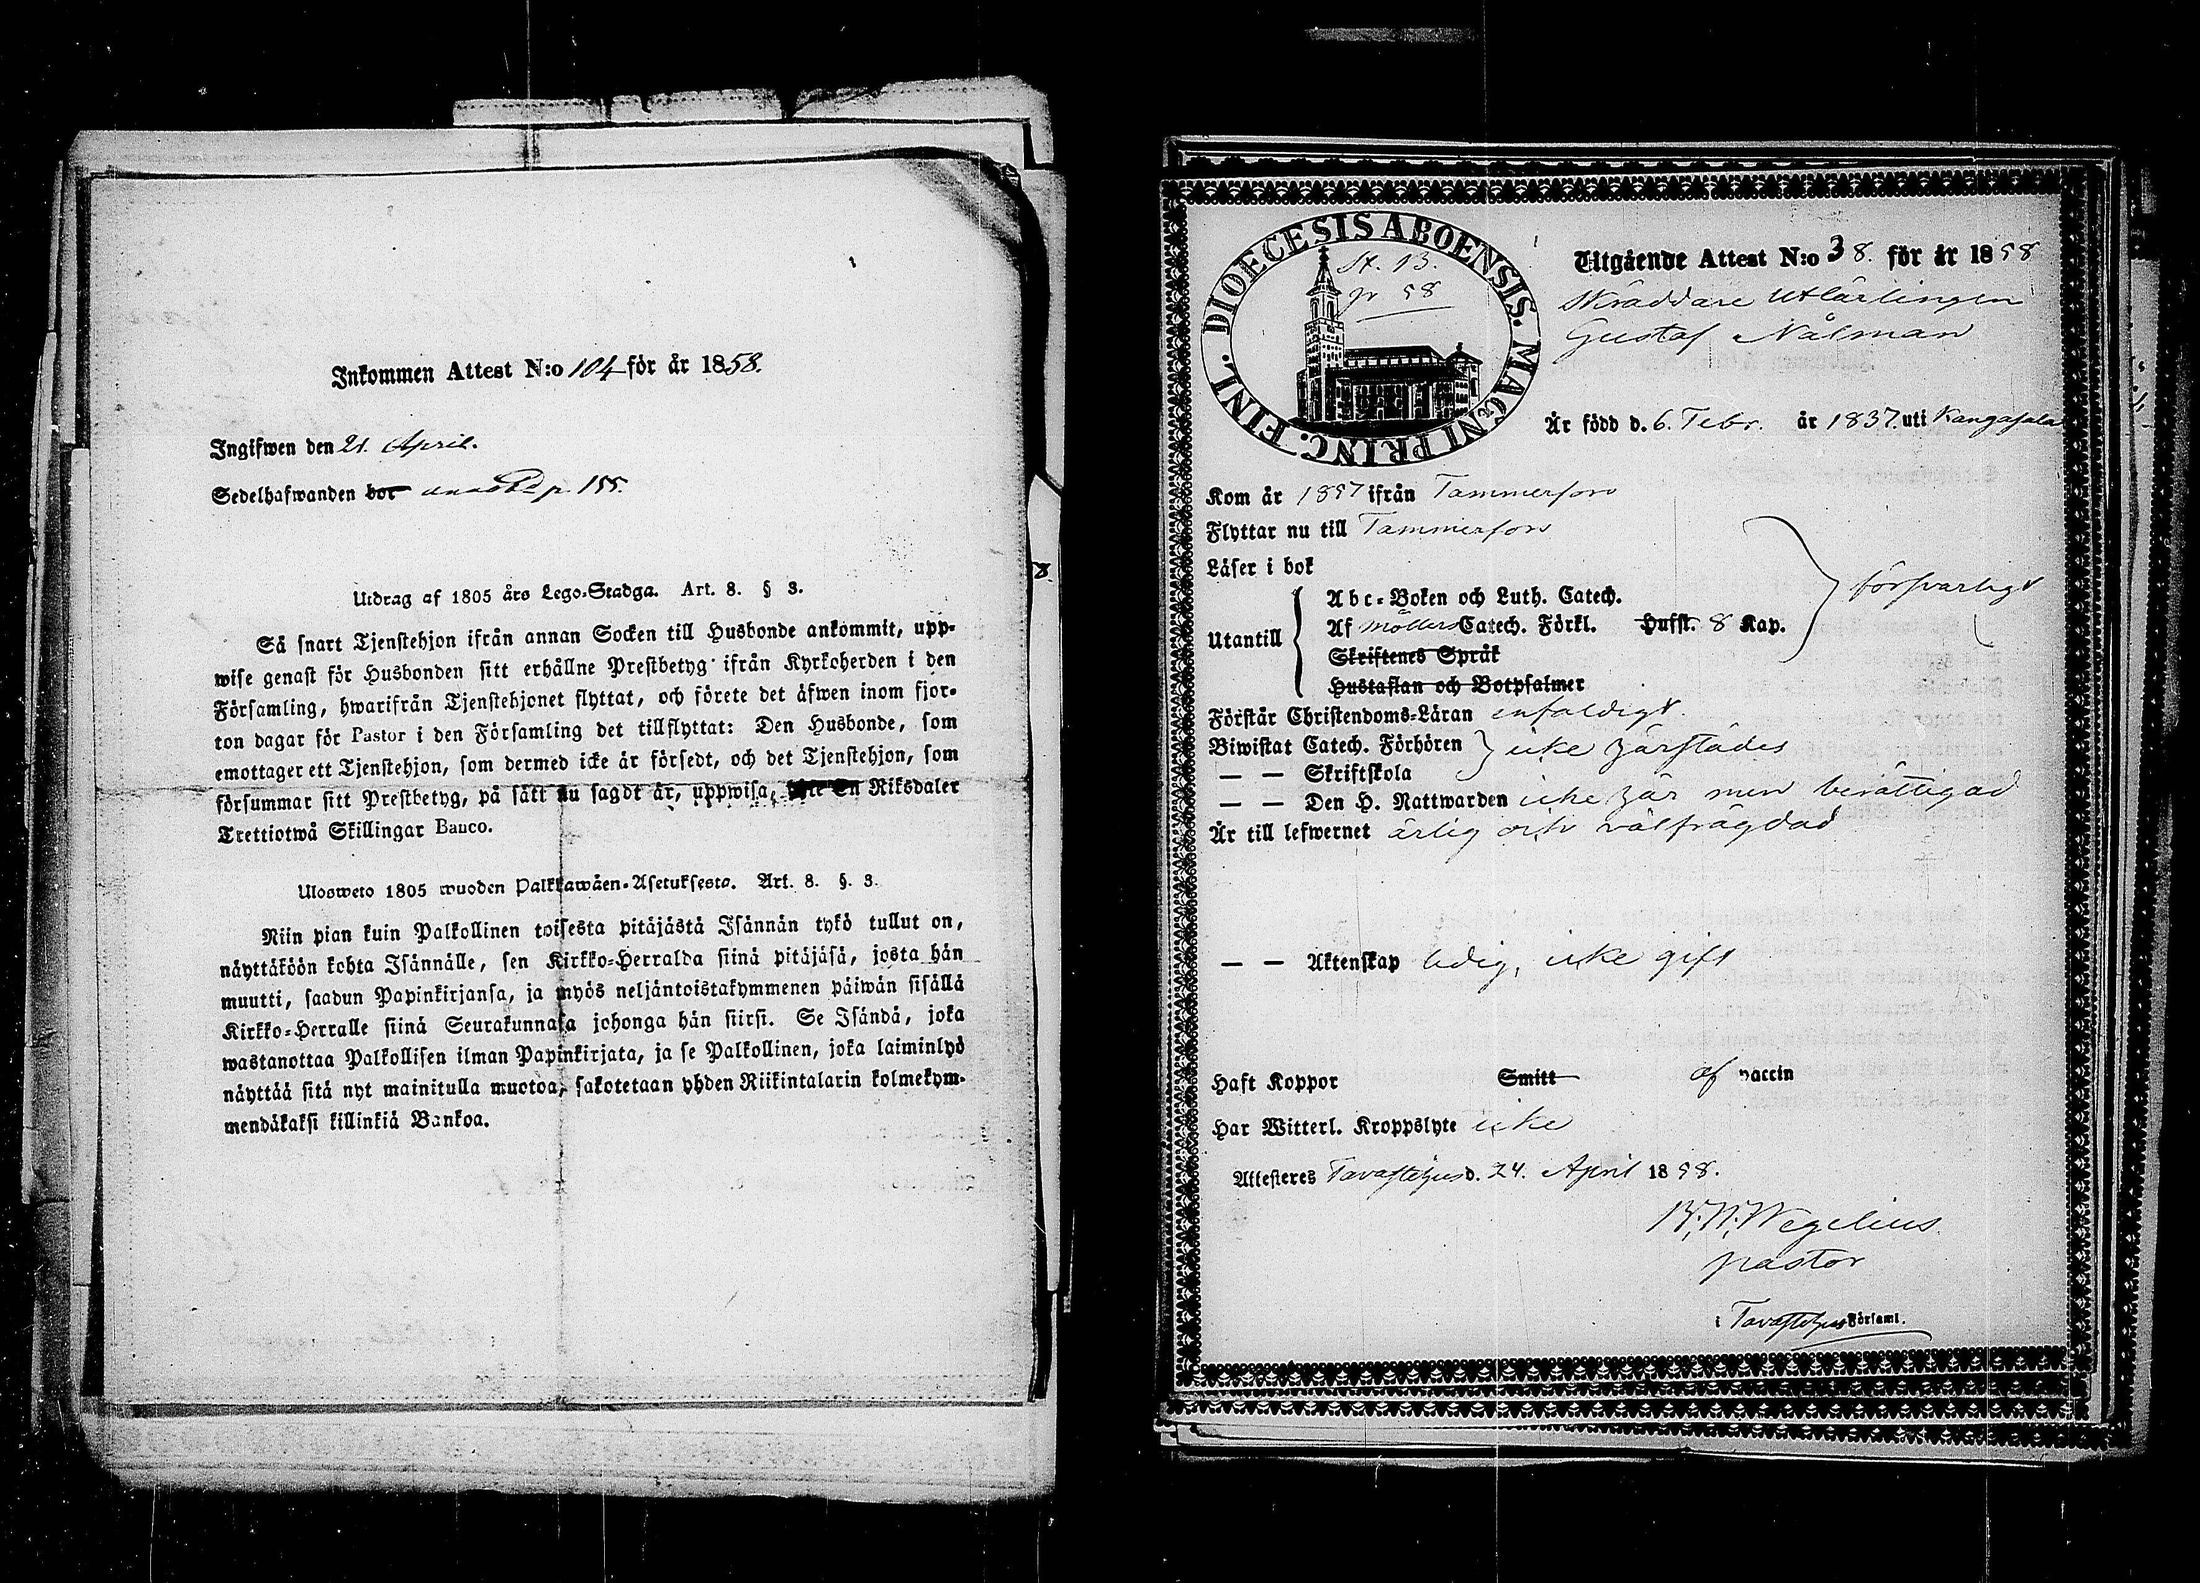 Inkommen Attest N:o 104 för år 1858.
Ingifwen den 21. April.
Sedelhafwanden bor p. 155.
Utdrag af 1805 års Lego-Stadga. Art. 8. § 3.
Så snart Tjenstehjon ifrån annan Socken till Husbonde ankommit, upp-
wise genast för Husbonden sitt erhållne Prestbetyg ifrån Kyrkoherden i den
Församling, hwarifrån Tjenstehjonet flyttat, och förete det äfwen inom fjor-
ton dagar för Pastor i den Församling det tillflyttat: Den Husbonde, som
emottager ett Tjenstehjon, som dermed icke är försedt, och det Tjenstehjon, som
försummar sitt Prestbetyg, på sätt nu sagdt är, uppwisa, En Riksdaler
Trettiotwå Skillingar Banco.
Ulosweto 1805 wuoden Palkkawäen-Asetuksesta. Art. 8. §. 3.
Niin pian kuin Palkollinen toisesta pitäjästä Isännän tykö tullut on,
näyttäköön kohta Isännälle, sen Kirkko-Herralda siinä pitäjäsä, josta hän
muutti, saadun Papinkirjansa, ja myös neljäntoistakymmenen päiwän sisällä
Kirkko-Herralle siinä Seurakunnasa johonga hän siirsi. Se Isändä, joka
wastanottaa Palkollisen ilman Papinkirjata, ja se Palkollinen, joka laiminlyö
näyttää sitä nyt mainitulla muotoa, sakotetaan yhden Riikintalarin kolmekym-
mendäkaksi killinkiä Bankoa.
DIOECESIS ABOENSIS. MAGNI PRINC. FINL.
St. 13.
p 58
Utgående Attest N:o 38. för år 1858
Skräddare Utlärlingen
Gustaf Nålman
Är född d. 6. Febr. år 1837. uti Kangasala
Kom år 1857 ifrån Tammerfors
Flyttar nu till Tammerfors
Läser i bok
Utantill
Abc-Boken och Luth. Catech.
Af Möllers Catech. Förkl. Hufst. 8 Kap.
Skriftenes Språk
Hustaflan och Botpsalmer
försvarligt
Förstår Christendoms-Läran enfaldigt
Biwistat Catech. Förhören icke härstädes
— — Skriftskola
— — Den H. Nattwarden icke här men berättigad
Är till lefwernet ärlig och välfrägdad
— — Äktenskap ledig, icke gift
Haft Koppor Smitt af vaccin
Har Witterl. Kroppslyte icke
Attesteres Tavastehus d. 24. April 1858.
Wegelius.
pastor
i Tavastehus Församl.